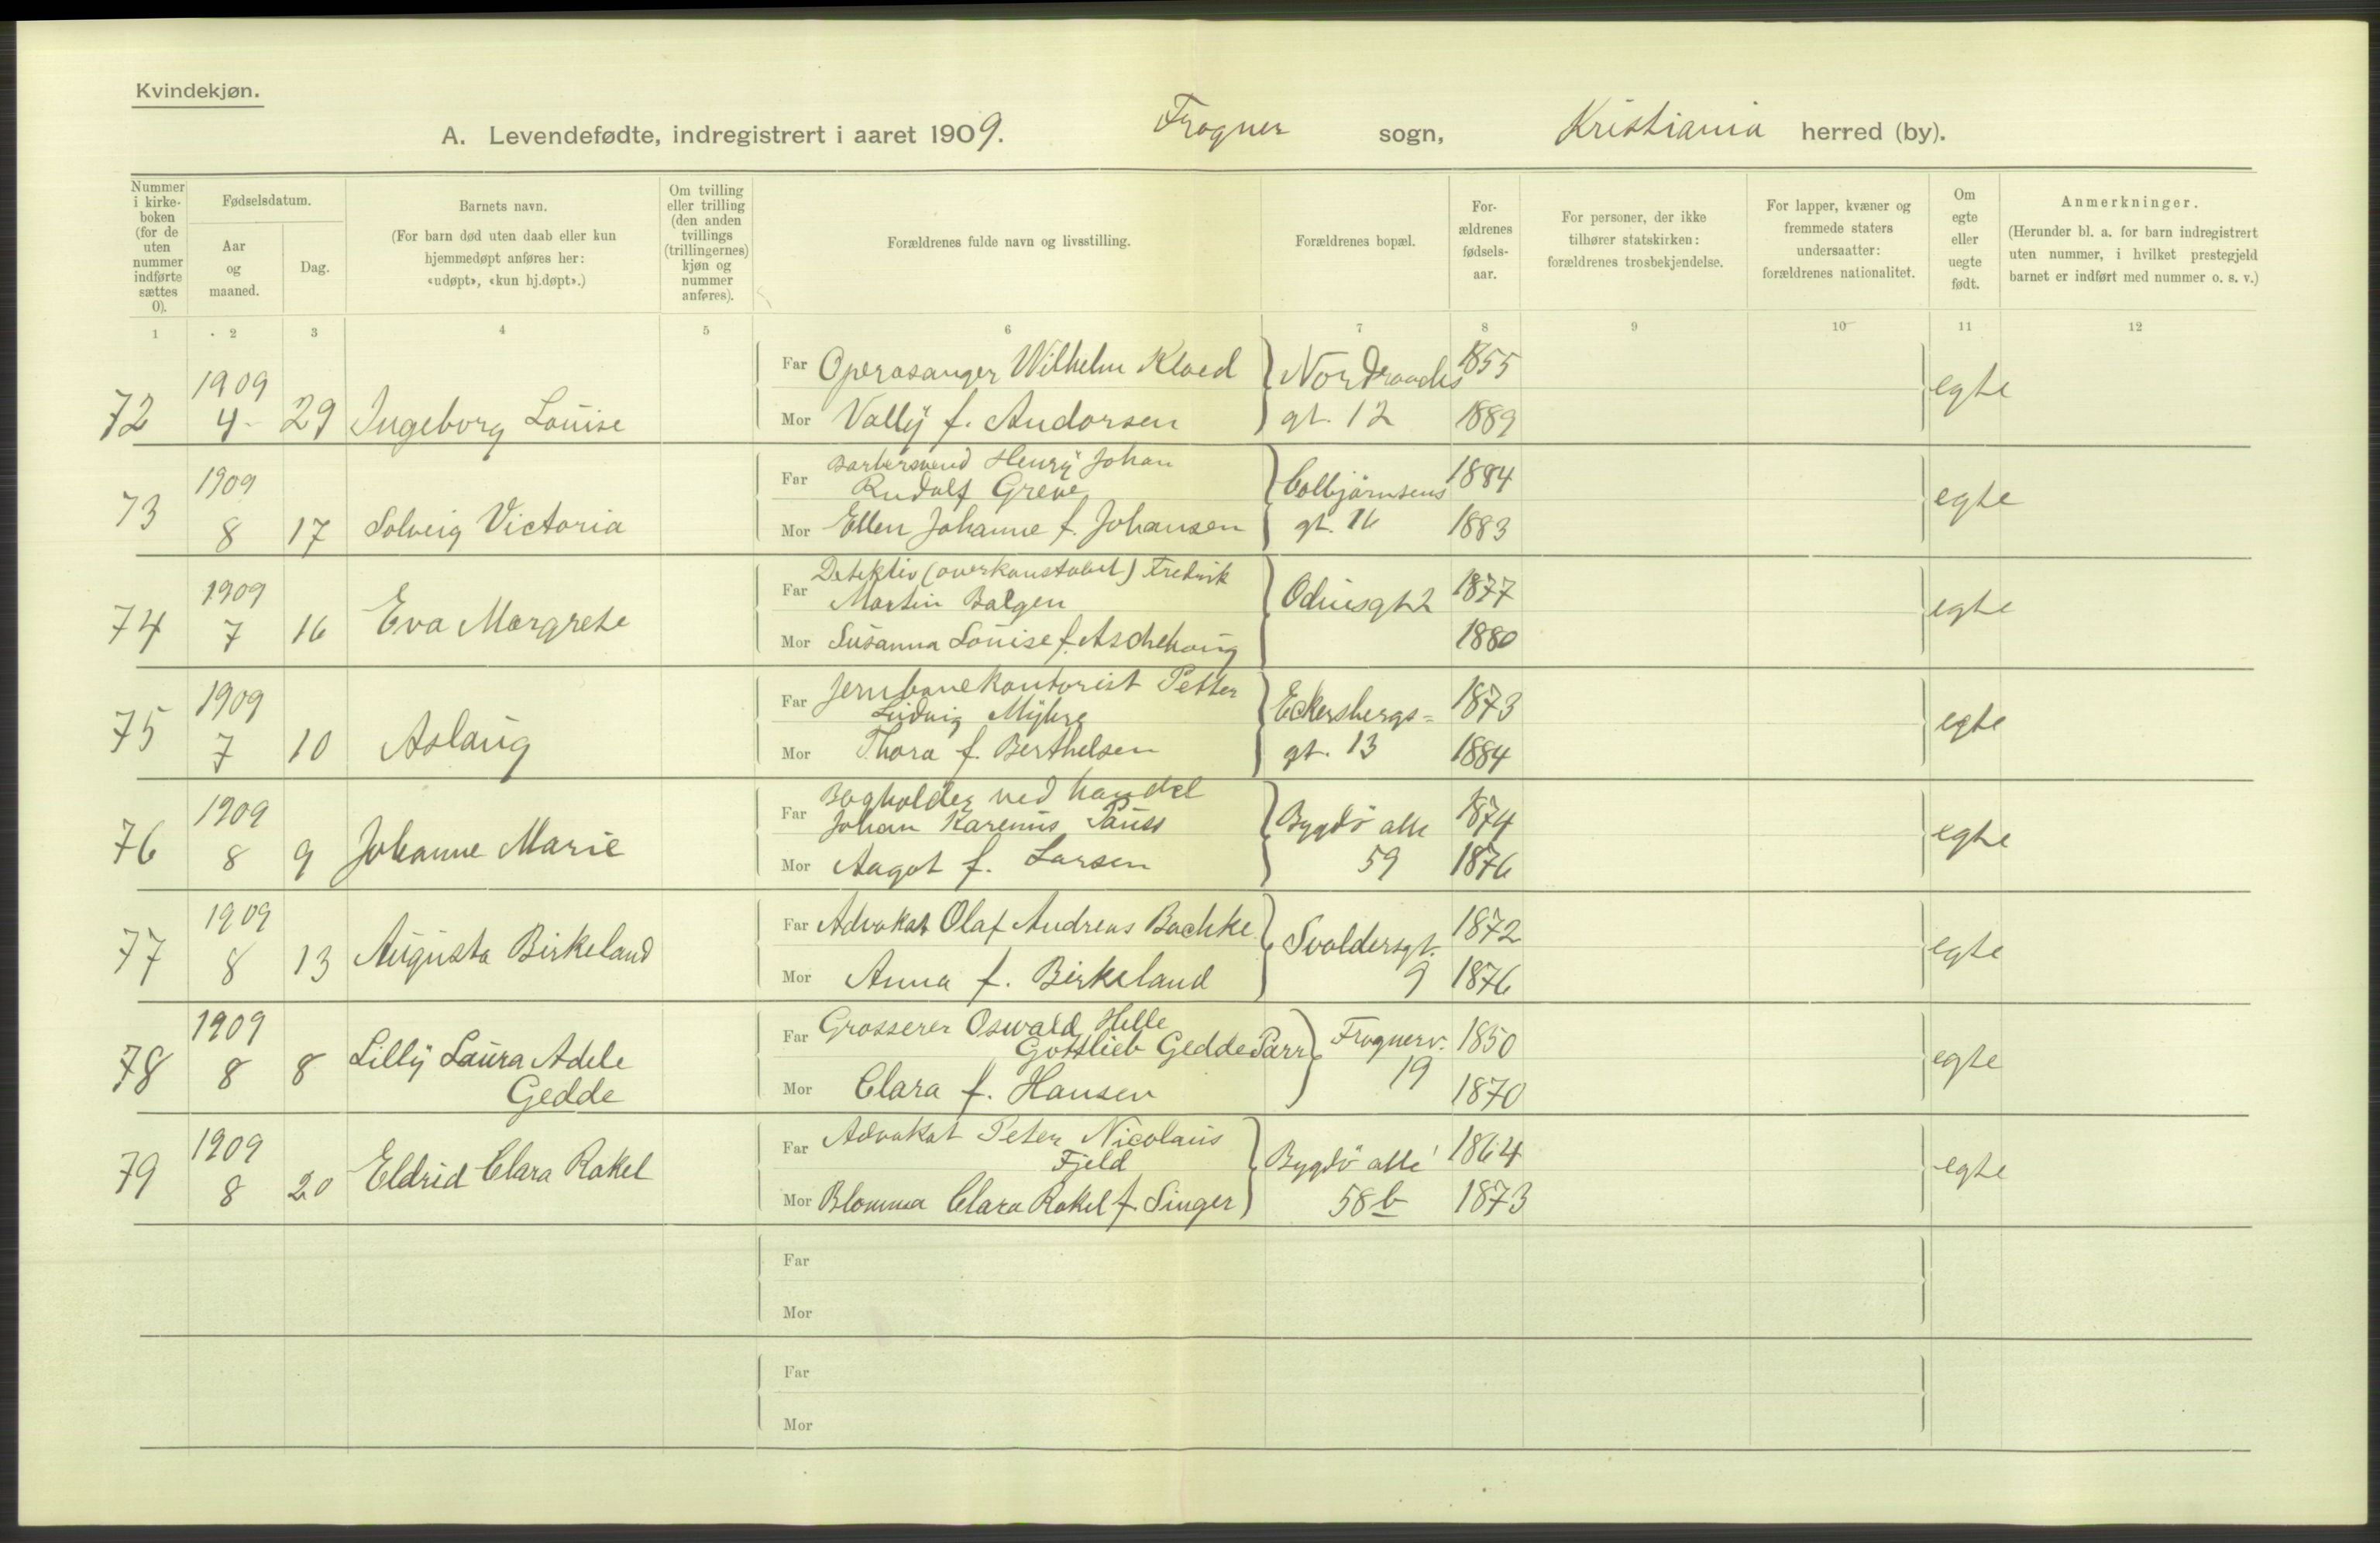 Kvindekjøn.
A. Levendefødte, indregistrert i aaret 1909. Frogner sogn, Kristiania herred (by).
Nummer i kirke-boken (for de uten nummer indførte sættes 0).
Fødselsdatum.
Aar og maaned.
Dag.
Barnets navn.
(For barn død uten daab eller kun hjemmedøpt anføres her: «udøpt», «kun hj.døpt».)
Om tvilling eller trilling (den anden tvillings (trillingernes) kjøn og nummer anføres).
Forældrenes fulde navn og livsstilling.
Forældrenes bopæl.
For-ældrenes fødsels-aar.
For personer, der ikke tilhører statskirken: forældrenes trosbekjendelse.
For lapper, kvæner og fremmede staters undersaatter: forældrenes nationalitet.
Om egte eller uegte født.
Anmerkninger.
(Herunder bl. a. for barn indregistrert uten nummer, i hvilket prestegjeld barnet er indført med nummer o. s. v.)
1 2 3 4 5 6 7 8 9 10 11 12
72 1909 4 29 Ingeborg Louise
Far Operasanger Wilhelm Kloed Nordraachs 1855 egte
Mor Vally f. Andorsen gt. 12 1889
73 1909 8 17 Solveig Victoria
Far Barbersvend Henry Johan
Rudolf Greve Colbjørnsens 1884 egte
Mor Ellen Johanne f. Johansen gt. 16 1883
74 1909 7 16 Eva Margrete
Far Detektiv (overkonstabel) Fredrik
Martin Balgen Odinsgt 2 1877 egte
Mor Susanna Louise f. Aschehoug 1880
75 1909 7 10 Aslaug
Far Jernbanekontorist Petter
Ludvig Myhre Eckersbergs= 1873 egte
Mor Thora f. Berthelsen gt. 13 1884
76 1909 8 9 Johanne Marie
Far Bogholder ved handel
Johan Karenus Pauss Bygdö alle 1874 egte
Mor Aagot f. Larsen 59 1876
77 1909 8 13 Augusta Birkeland
Far Advokat Olaf Andreas Bachke Svoldersgt. 1872 egte
Mor Anna f. Birkeland 9 1876
78 1909 8 8 Lilly Laura Adele
Gedde
Far Grosserer Oswald Helle
Gottlieb Gedde Parr Frognerv. 1850 egte
Mor Clara f. Hansen 19 1870
79 1909 8 20 Eldrid Clara Rakel
Far Advokat Peter Nicolaus
Fjeld Bygdö allé 1864 egte
Mor Blomma Clara Rakel f. Singer 58b 1873
Far
Mor
Far
Mor